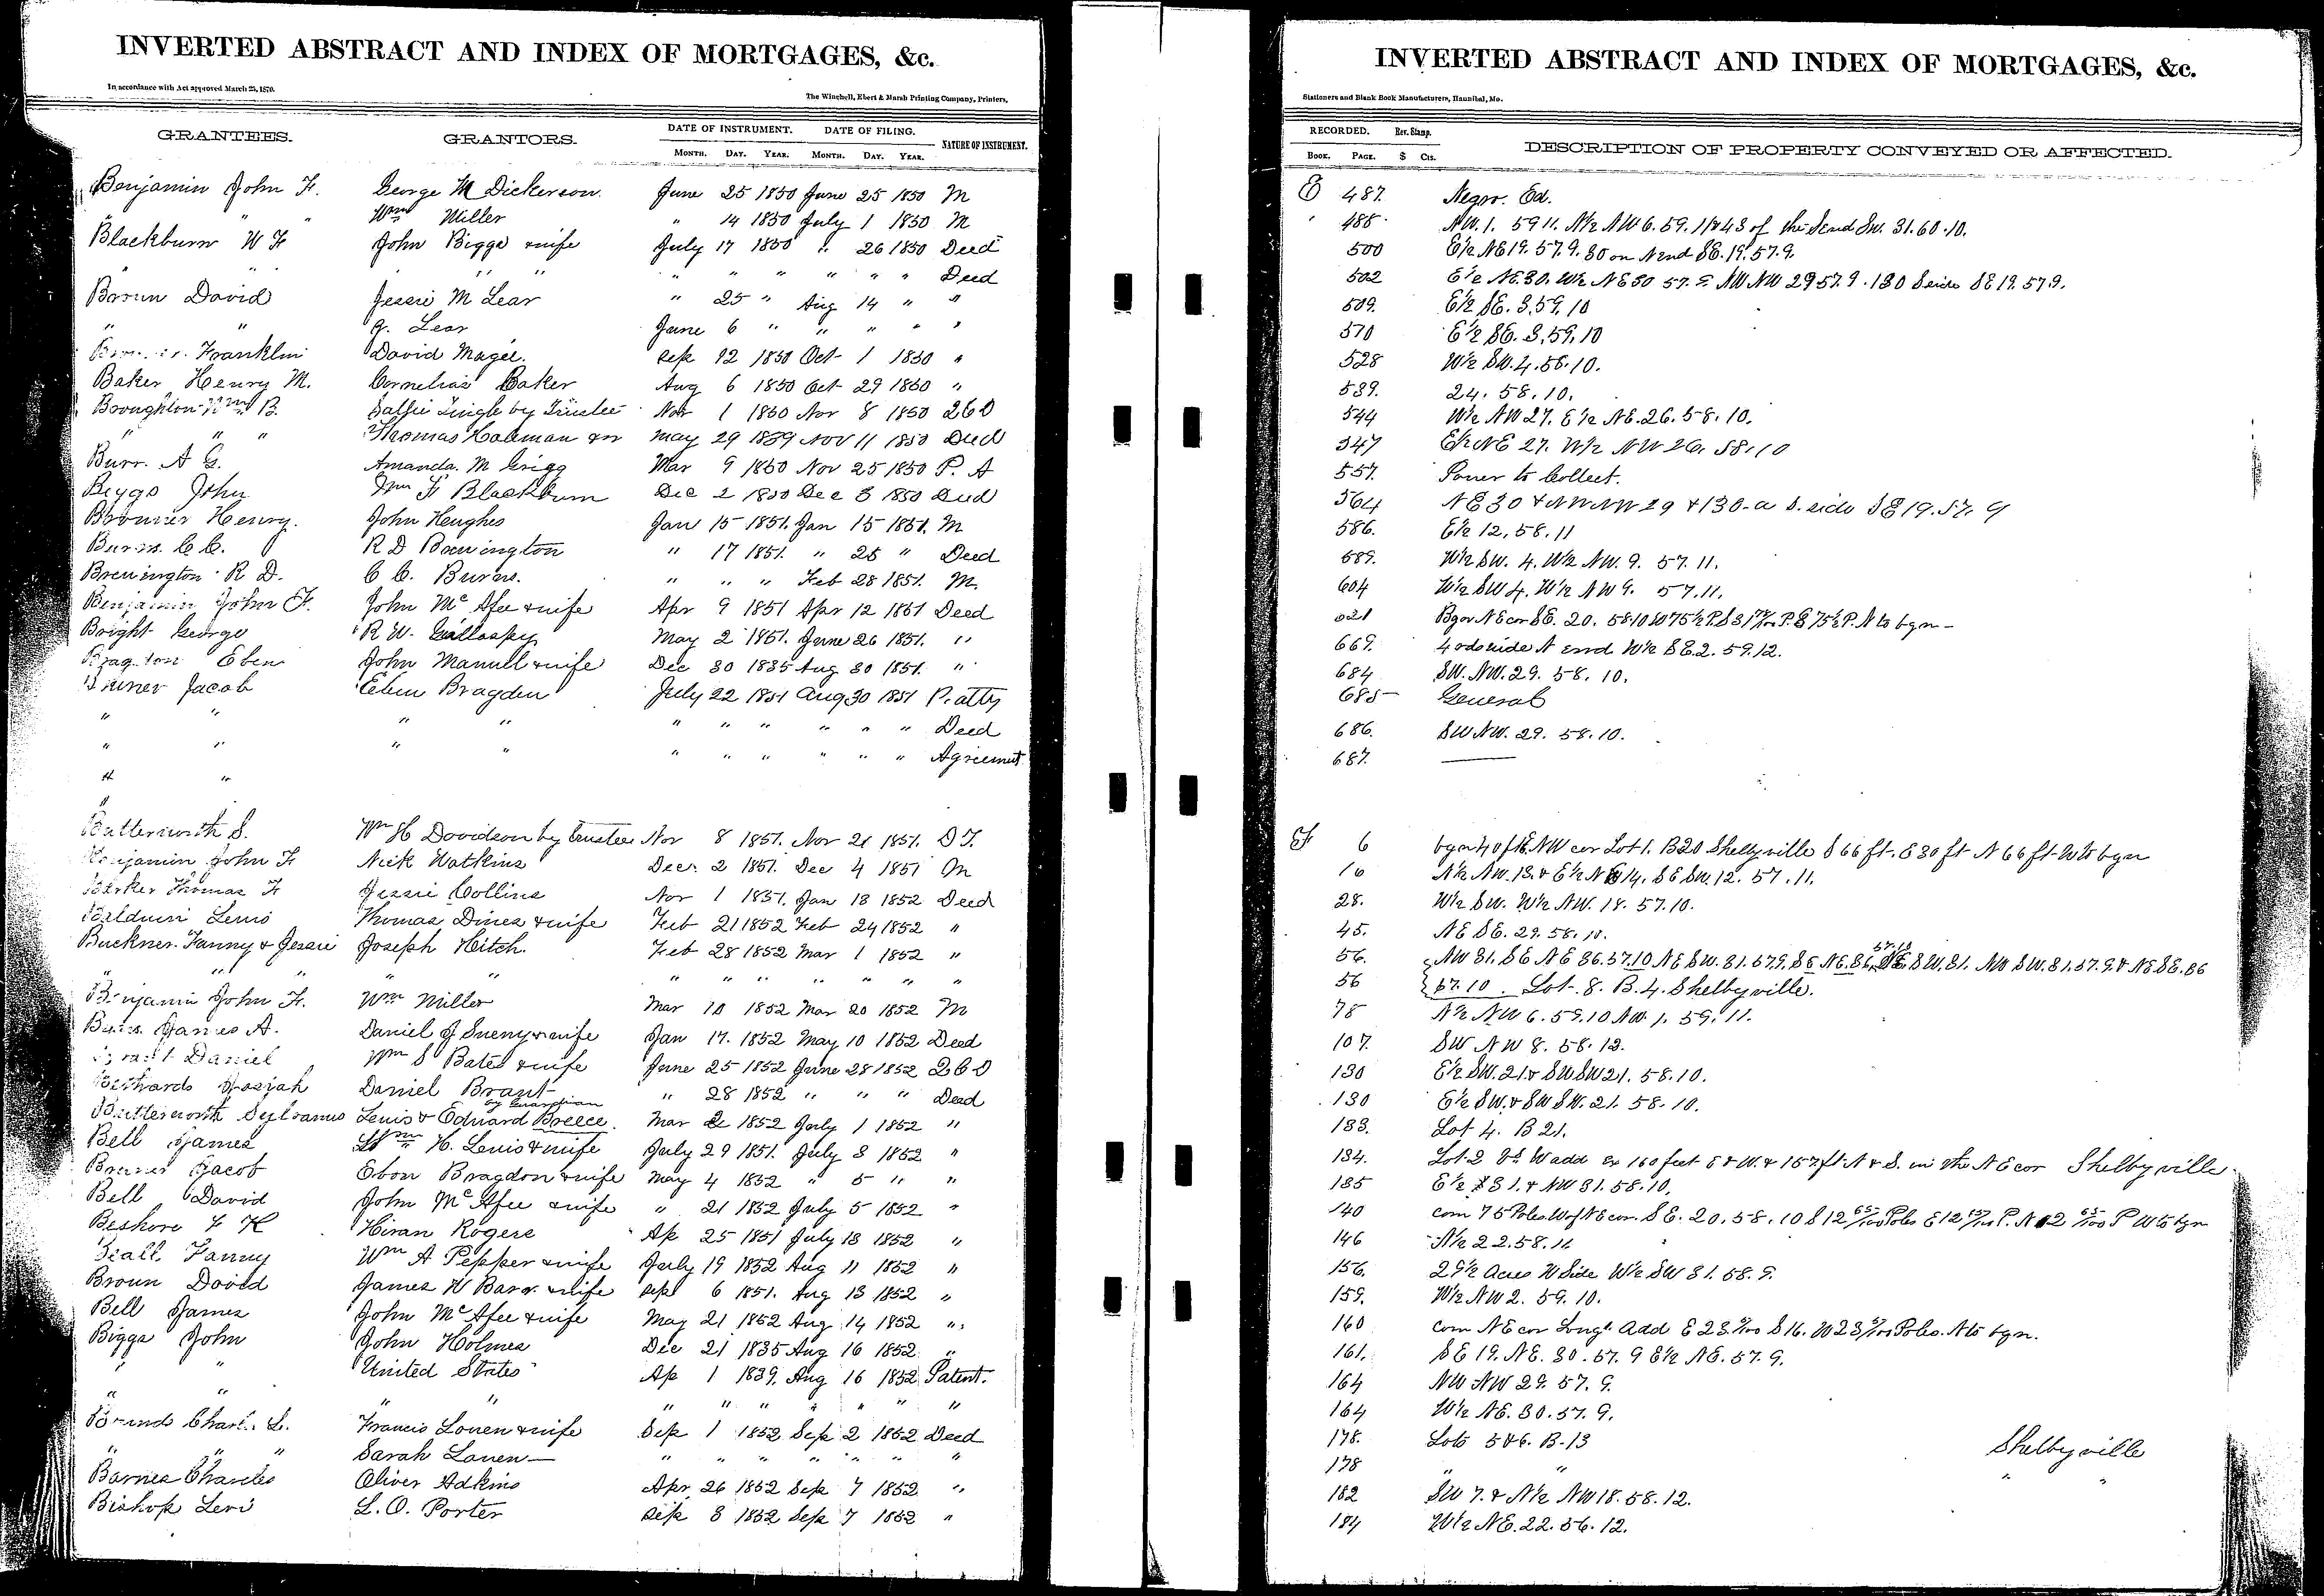 INVERTED ABSTRACT AND INDEX OF MORTGAGES, &c.
In accordance with Act approved March 25, 1870.
The Winchell, Ebert & Marsh Printing Company, Printers,
GRANTEES. GRANTORS. DATE OF INSTRUMENT. DATE OF FILING. NATURE OF INSTRUMENT.
MONTH. DAY. YEAR. MONTH. DAY. YEAR.
Benjamin John F. George M Dickerson. June 25 1850 June 25 1850 M
" " Wm Miller " 14 1850 July 1 1850 M
Blackburn W F John Biggs & wife July 17 1850 " 26 1850 Deed
" " " " " " " " " " Deed
David Jessie M Lear " 25 " Aug 14 " "
" " J. Lear June 6 " " " " "
Franklin David Magee. Sep 12 1850 Oct 1 1850 "
Baker Henry M. Cornelias Baker Aug 6 1850 Oct 29 1850 "
Broughton Wm B. Sallie Lingle by Trustee Nov 1 1850 Nov 8 1850
" " " Thomas Holeman May 29 1839 Nov 11 1850 Deed
Burr. A G. Amanda. M Grigg Mar 9 1850 Nov 25 1850 P. A
Biggs John Wm F Blackburn Dec 2 1850 Dec 3 1850 Deed
Henry. John Hughes Jan 15 1851. Jan 15 1851. M
C C. R D " 17 1851. " 25 " Deed
R D. C C. " " " Feb 28 1851. M.
Benjamin John F. John Mc Afee & wife Apr 9 1851 Apr 12 1851 Deed
Bright George R W. May 2 1851. June 26 1851. "
Eben John & wife Dec 30 1835 Aug 30 1851. "
Jacob Eben Bragdon July 22 1851 Aug 30 1851 P. atty
" " " " " " " " " " Deed
" " " " " " " " " " Agreement
" "
"
Butterworth S. Wm H Davidson by trustee Nov 8 1851. Nov 21 1851. D T.
Benjamin John F Nick Watkins Dec. 2 1851. Dec 4 1851 M
Barker Thomas F Jessie Collins Nov 1 1851. Jan 13 1852 Deed
Balduin Lewis Thomas Dines & wife Feb 21 1852 Feb 24 1852 "
Buckner. Fanny & Jessie Joseph Hitch. Feb 28 1852 Mar 1 1852 "
" " " " " " " " " " "
Benjamin John F. Wm Miller Mar 10 1852 Mar 20 1852 M
James A. Daniel J & wife Jan 17. 1852 May 10 1852 Deed
Daniel Wm S Bates & wife June 25 1852 June 28 1852
Josiah Daniel Brant " 28 1852 " " " Deed
by Guardian
Butterworth Sylvanus Lewis & Edward Breece. Mar 2 1852 July 1 1852 "
Bell James Wm H. Lewis & wife July 29 1851. July 3 1852 "
Jacob Ebon Bragdon & wife May 4 1852 " 5 " "
Bell David John Mc Afee & wife " 21 1852 July 5 1852 "
Beshore F H Hiram Rogers Ap 25 1851 July 13 1852 "
Fanny Wm A Pepper & wife July 19 1852 Aug 11 1852 "
Broun David James W & wife Sept 6 1851. Aug 13 1852 "
Bell James John Mc Afee & wife May 21 1852 Aug 14 1852 "
Biggs John John Holmes Dec 21 1835 Aug 16 1852. "
" " United States Ap 1 1839. Aug 16 1852 Patent.
" " " " " " " " " "
Francis Louen & wife Sep 1 1852 Sep 2 1852 Deed
" " " Sarah Louen " " " " " " "
Barnes Charles Oliver Adkins Apr 26 1852 Sep 7 1852 "
Bishop Levi L. O. Porter Sep 3 1852 Sep 7 1852 "
INVERTED ABSTRACT AND INDEX OF MORTGAGES, &c.
Stationers and Blank Book Manufacturers, Hannibal, Mo.
RECORDED. Rev. Stamp. DESCRIPTION OF PROPERTY CONVEYED OR AFFECTED.
BOOK. PAGE. $ CTS.
E 487. Negro. Ed.
" 488. NW. 1. 59 11. N½ NW 6. 59. 11 & 43 of the S end SW. 31. 60. 10.
500 E½ NE 19. 57. 9. 80 on N end SE. 19. 57. 9.
502 E½ NE. 30. W½ NE 30 57. 9 NW NW 29 57. 9. 130 S side SE 19. 57. 9.
509. E½ SE. 3. 59. 10
510 E½ SE. 3. 59. 10
528 W½ SW. 4. 58. 10.
539. 24. 58. 10.
544 W½ NW 27. E½ NE. 26. 58. 10.
547 E½ NE 27. W½ NW 26. 58. 10
557. Power to Collect.
564 NE 30 & NW NW 29 & 130. a S. side SE 19. 57. 9
586. E½ 12. 58. 11
589. W½ SW. 4. W½ NW. 9. 57. 11.
604 W½ SW 4. W½ NW 9. 57. 11.
621
669. N end W½ SE. 2. 59. 12.
684 SW. NW. 29. 58. 10.
685 General
686. SW NW. 29. 58. 10.
687.
F 6 bgn 40 ft E. NW cor Lot 1. B 20 Shelbyville S 66 ft. E 30 ft N 66 ft W to bgn
16 N½ NW. 13. & E½ NE 14. SE SW. 12. 57. 11.
28. W½ SW. W½ NW. 18. 57. 10.
45. NE SE. 29. 58. 10.
56. NW 31. SE NE 36. 57. 10 NE SW. 31. 57. 9. SE NE. 36. SW. 31. NW SW. 31. 57. 9. & NE. SE. 36
56 57. 10. Lot. 8. B. 4. Shelbyville.
78 N½ NW 6. 59. 10 NW. 1. 59. 11.
107. SW NW 8. 58. 12.
130 E½ SW. 21 & SW SW 21. 58. 10.
130 E½ SW. & SW SW. 21. 58. 10.
133. Lot 4. B 21.
134. Lot 2 W add ex 160 feet E & W. & 157 ft. N & S. in the NE cor Shelbyville
135 E½ 31. & NW 31. 58. 10.
140 com 75 Poles W of NE cor. SE. 20. 58. 10 S 12 65/100 Poles
146 N½ 22. 58. 11
156. 29½ Acres W Side W½ SW 31. 58. 9.
159. W½ NW 2. 59. 10.
160 com NE cor Add
161. SE 19. NE. 30. 57. 9 E½ NE. 57. 9.
164 NW NW 29. 57. 9.
164 W½ NE. 30. 57. 9.
178. Lots 5 & 6. B. 13 Shelbyville
178 " " "
182 SW 7. & N½ NW 18. 58. 12.
184 W½ NE. 22. 56. 12.